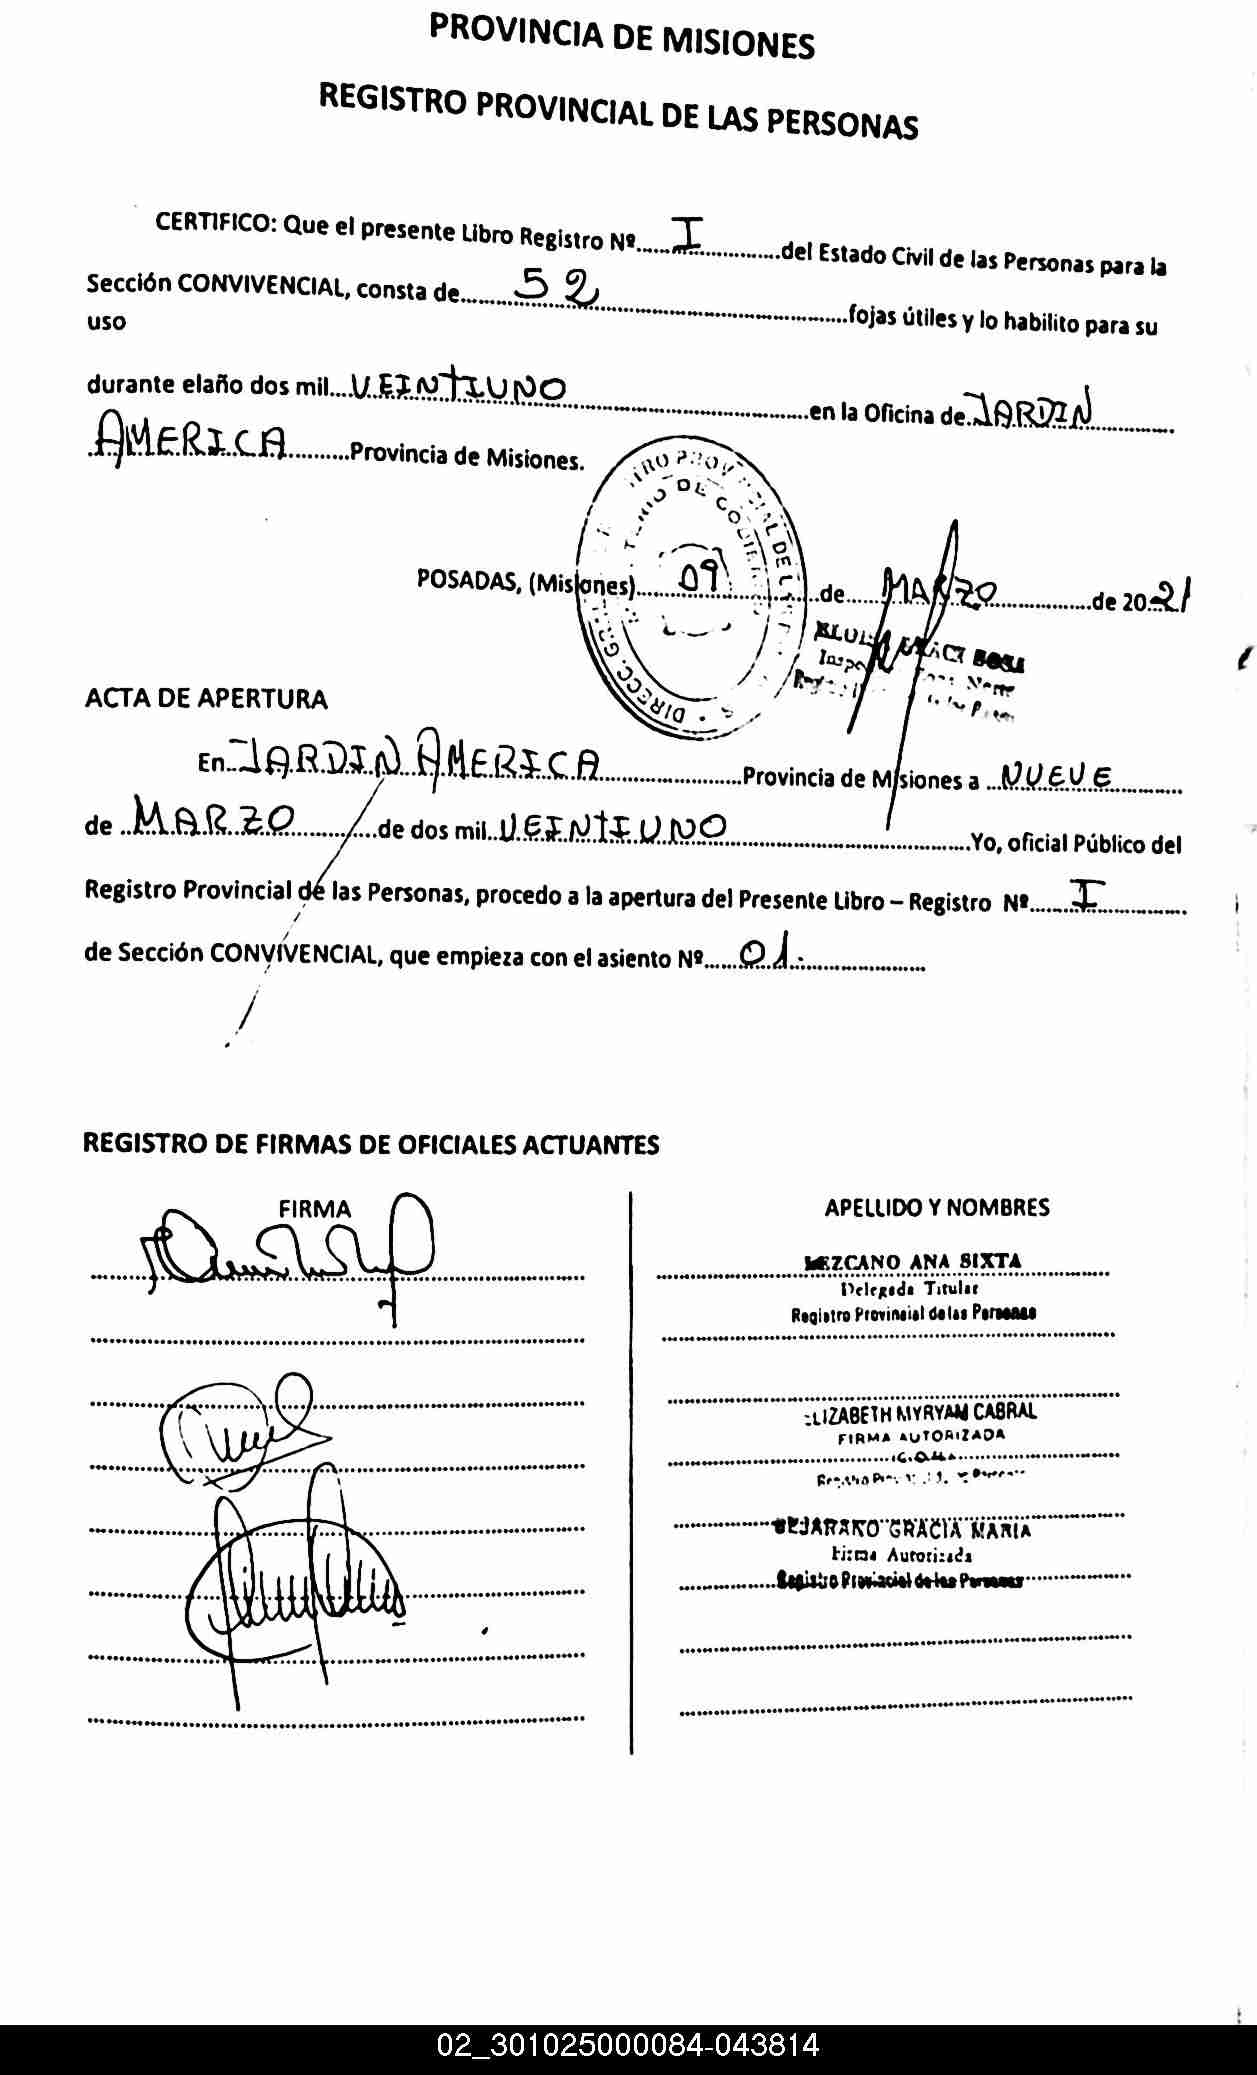 PROVINCIA DE MISIONES
REGISTRO PROVINCIAL DE LAS PERSONAS
CERTIFICO: Que el presente Libro Registro Nº......I..............del Estado Civil de las Personas para la
Sección CONVIVENCIAL, consta de.......52..............fojas útiles y lo habilito para su
uso
durante elaño dos mil...VEINTIUNO..............en la Oficina de.JARDIN..........
AMERICA..........Provincia de Misiones.
POSADAS, (Misiones)......09..........de.....MARZO..............de 20.21
ACTA DE APERTURA
En..JARDIN AMERICA....................Provincia de Misiones a ..NUEVE..........
de ..MARZO..........de dos mil..VEINTIUNO..............................Yo, oficial Público del
Registro Provincial de las Personas, procedo a la apertura del Presente Libro – Registro Nº......I..........
de Sección CONVIVENCIAL, que empieza con el asiento Nº.....01...............
REGISTRO DE FIRMAS DE OFICIALES ACTUANTES
FIRMA APELLIDO Y NOMBRES
LEZCANO ANA SIXTA
Delegada Titular
Registro Provincial de las Personas
ELIZABETH MYRYAM CABRAL
FIRMA AUTORIZADA
BEJARANO GRACIA MARIA
Firma Autorizada
Registro Provincial de las Personas
02_301025000084-043814